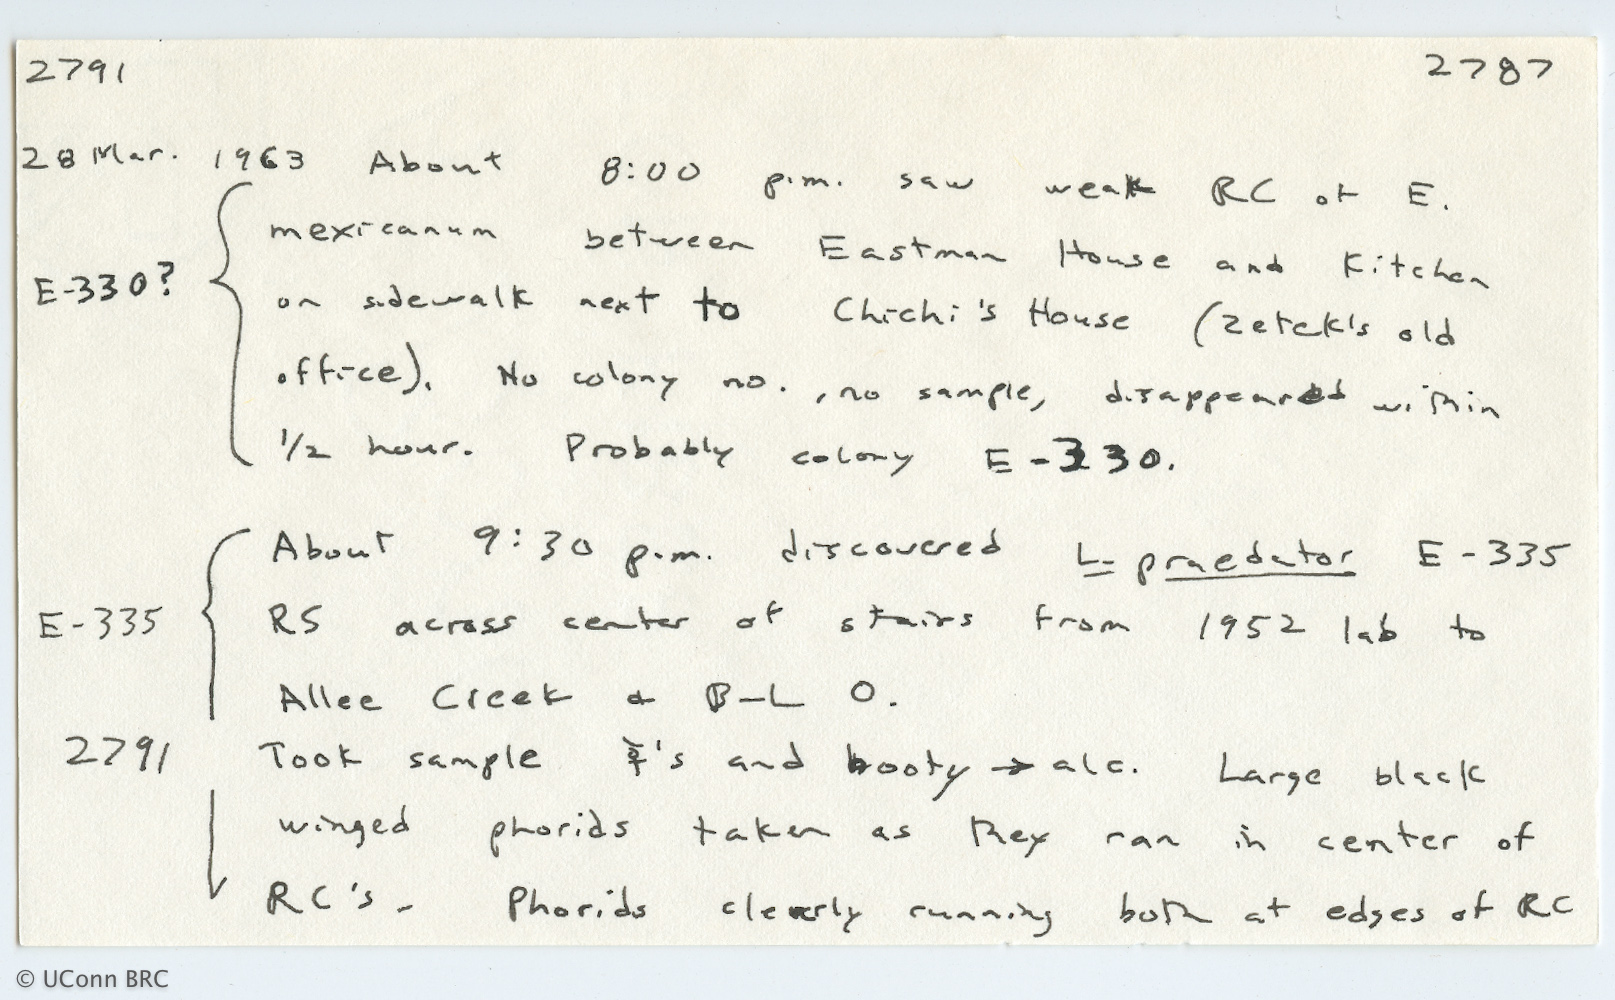 2791 2787
28 Mar. 1963 About 8:00 p.m. saw weak RC of E.
mexicanum between Eastman House and Kitchen
E-330? on sidewalk next to Chichi's House (Zetek's old
office). No colony no., no sample, disappeared within
1/2 hour. Probably colony E-330.
About 9:30 p.m. discovered L. praedator E-335
E-335 RS across center of stairs from 1952 lab to
Allee Creek & B-L O.
2791 Took sample ☿'s and booty → alc. Large black
winged phorids taken as they ran in center of
RC's. Phorids clearly running both at edges of RC
© UConn BRC